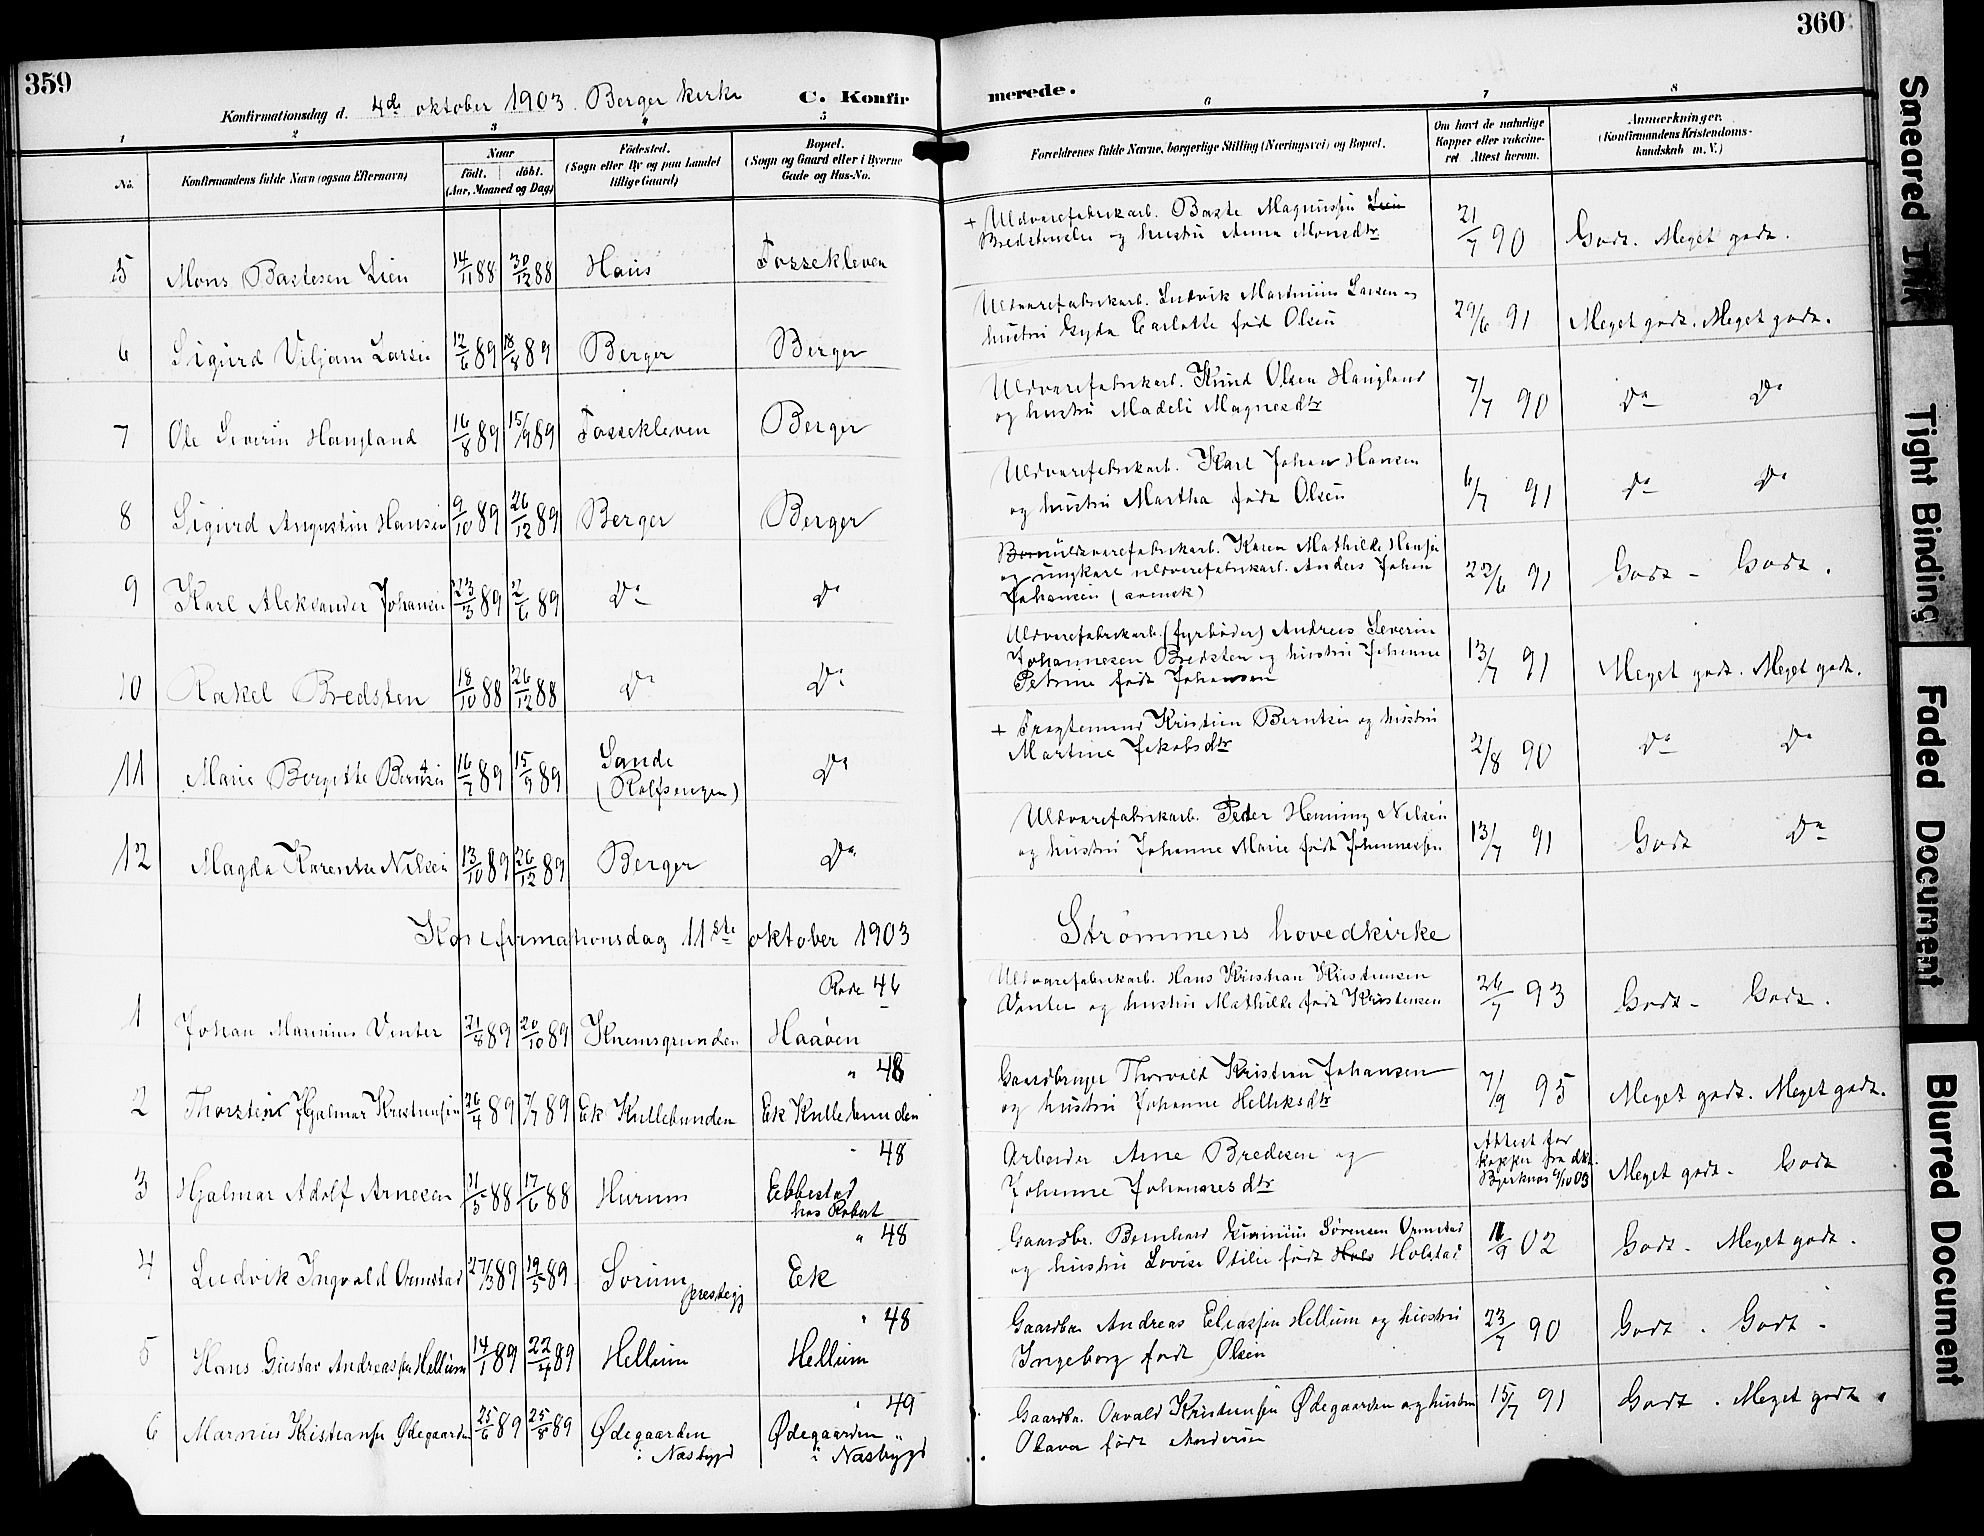 359
360
Konfirmationsdag d. 4de oktober 1903. Berger kirke
C. Konfirmerede.
1 2 3 4 5 6 7 8
No.
Konfirmandens fulde Navn (ogsaa Efternavn)
Naar
født. døbt.
(Aar, Maaned og Dag)
Fødested.
(Sogn eller By og paa Landet
tillige Gaard)
Bopæl.
(Sogn og Gaard eller i Byerne
Gade og Hus-No.
Forældrenes fulde Navne, borgerlige Stilling (Næringsvei) og Bopæl.
Om havt de naturlige
Kopper eller vakcine-
ret Attest herom.
Anmærkninger.
(Konfirmandens Kristendoms-
kundskab m. V.)
5 Mons Bastesen Lien 14/11 88 30/12 88 Haus Fossekleven
+ Uldvarefabrikarb. Baste Magnussen Lien
og hustru Anna Monsdtr 21/7 90 Godt. Meget godt.
6 Sigurd Viljam Larsen 12/6 89 18/8 89 Berger Berger
Uldvarefabrikarb. Ludvik Martinius Larsen og
hustru Gyda Carlotte født Olsen 29/6 91 Meget godt. Meget godt.
7 Ole Severin Haugland 16/8 89 15/9 89 Fossekleven Berger
Uldvarefabrikarb. Knud Olsen Haugland
og hustru Madeli Magnesdtr 7/7 90 Do Do
8 Sigurd Augustin Hansen 9/10 89 26/12 89 Berger Berger
Uldvarefabrikarb. Karl Johan Hansen
og hustru Martha født Olsen 6/7 91 Do Do
9 Karl Aleksander Johansen 23/3 89 2/6 89 Do Do
uldvarefabrikarb. Karen Mathilde Hansen
og ungkarl uldvarefabrikarb. Anders Johan
Johansen (svensk) 22/6 91 Godt - Godt.
10 Rakel Bredsten 18/10 88 26/12 88 Do Do
Uldvarefabrikarb. (fyrbøder) Andreas Severin
Johannesen Bredsten og hustru Johanne
Petrine født Johansen 13/7 91 Meget godt. Meget godt.
11 Marie Bergitte Berntsen 16/7 89 15/9 89 Sande
(Rolfsengen) Do
+ Fragtemand Kristian Berntsen og hustru
Martine Jakobsdtr 2/8 90 Do Do
12 Magda Karentse Nilsen 13/10 89 26/12 89 Berger Do
Uldvarefabrikarb. Peder Henning Nilsen
og hustru Johanne Marie født Johannessen 13/7 91 Godt Do
Konfirmationsdag 11ste oktober 1903 Strømmens hovedkirke
Rode 46
1 Johan Marinius Vinter 21/8 89 20/10 89 Knemsgrunden Haaven
Uldvarefabrikarb. Hans Kristian Kristensen
Vinter og hustru Mathilde født Kristensen 26/7 93 Godt - Godt.
" 48
2 Thorstein Hjalmar Kristiansen 26/4 89 7/7 89 Ek Kullebunden Ek Kullebunden
Gaardbruger Thorvald Kristian Johansen
og hustru Johanne Helliksdtr 7/9 95 Meget godt. Meget godt.
" 48
3 Hjalmar Adolf Arnesen 21/5 88 17/6 88 Hurum Ebbestad
hos Robert
Arbeider Arne Bredesen og
Johanne Johannesdtr
Attest for
kopper fra dkt.
Bjerknes 6/10 03 Meget godt. Godt
" 48
4 Ludvik Ingvald Ormstad 27/3 89 19/5 89 Sørum
prestegj Ek
Gaardbr. Bernhard Sørensen Ormstad
og hustru Lovise Otilie født Hols Holstad 11/9 02 Godt. Meget godt.
" 48
5 Hans Gustav Andreassen Hellum 14/1 89 22/4 89 Hellum Hellum
Gaardbr. Andreas Eliassen Hellum og hustru
Ingeborg født Olsen 23/7 90 Godt. Godt.
" 49
6 Marnius Kristiansen Ødegaarden 25/6 89 25/8 89 Ødegaarden
i Næsbygd Ødegaarden
i Næsbygd
Gaardbr. Osvald Kristiansen Ødegaarden og hustru
Olava født Andersen 15/7 91 Godt. Meget godt.
Smeared Ink
Tight Binding
Faded Document
Blurred Document